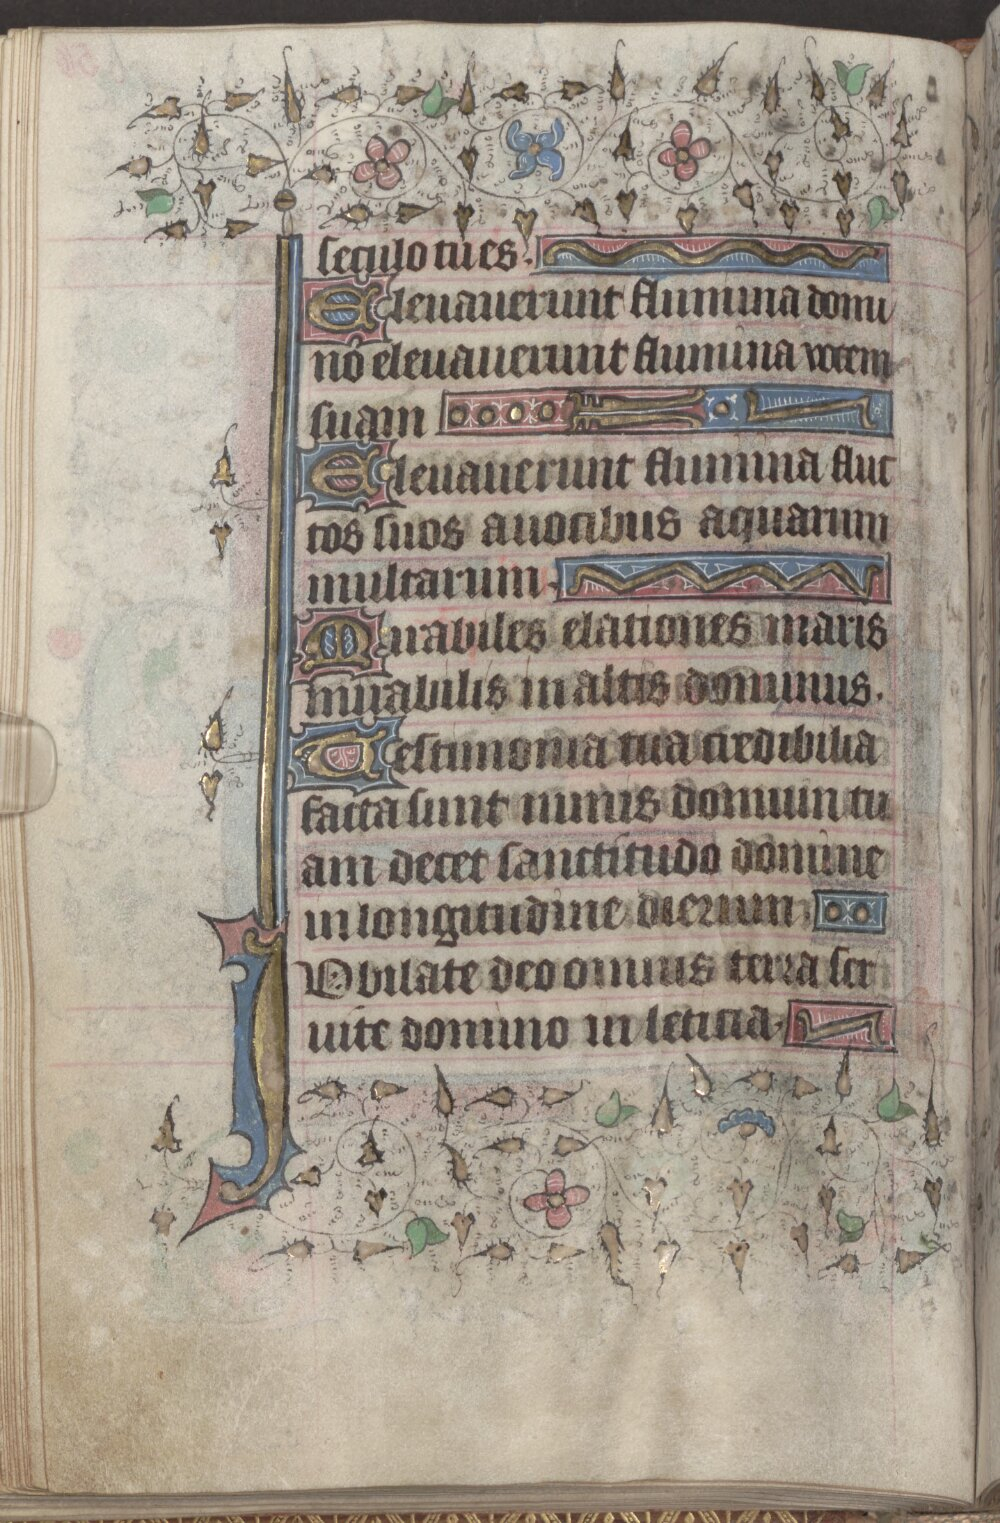 seculo tu es.
Eleuauerunt flumina domi
no eleuauerunt flumina vocem
suam
Eleuauerunt flumina fluc
tos suos a uocibus aquarum
multarum.
Mirabiles elationes maris
mirabilis in altis dominus.
Testimonia tua credibilia
facta sunt nimis domum tu
am decet sanctitudo domine
in longitudine dierum
Iubilate deo omnis terra ser
uite domino in leticia.